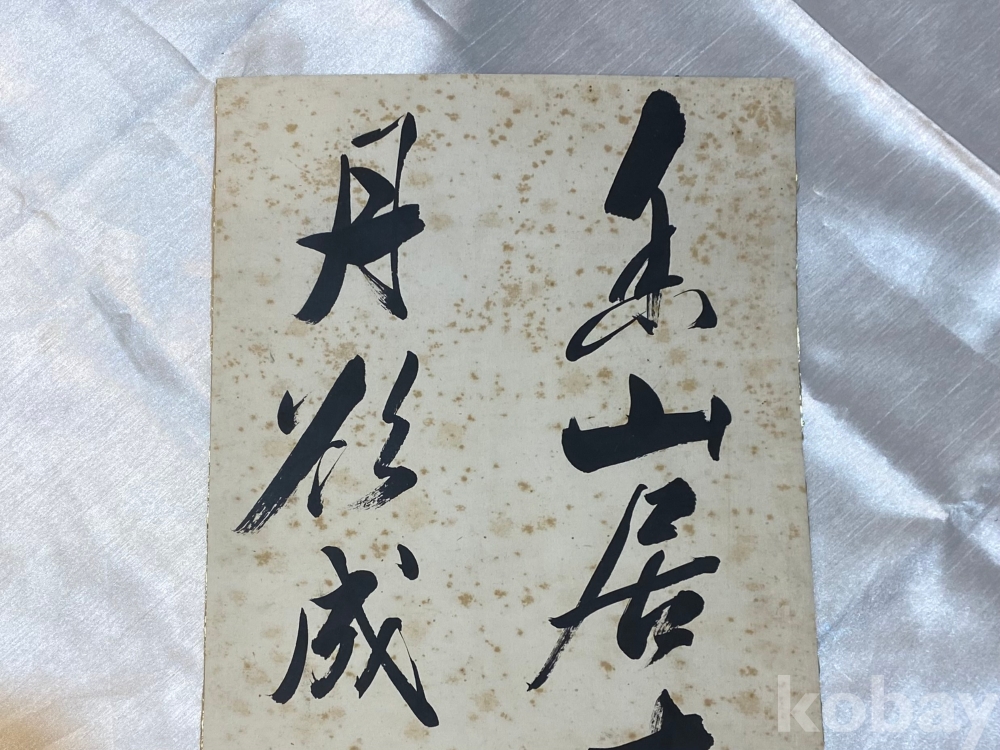 山居
丹欲成
kobay